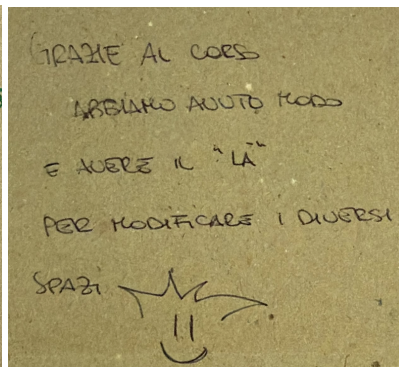 GRAZIE AL CORSO
ABBIAMO AVUTO MODO
E AVERE IL "LA"
PER MODIFICARE I DIVERSI
SPAZI